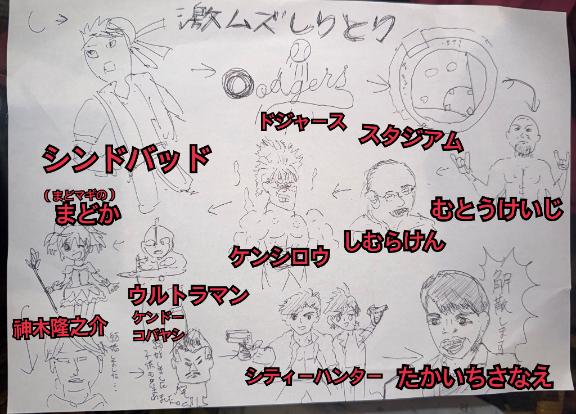 し→
激ムズしりとり
Dodgers
ドジャース
スタジアム
シンドバッド
(まどマギの)
まどか
むとうけいじ
しむらけん
ケンシロウ
ウルトラマン
ケンドー
コバヤシ
神木隆之介
シティーハンター
たかいちさなえ